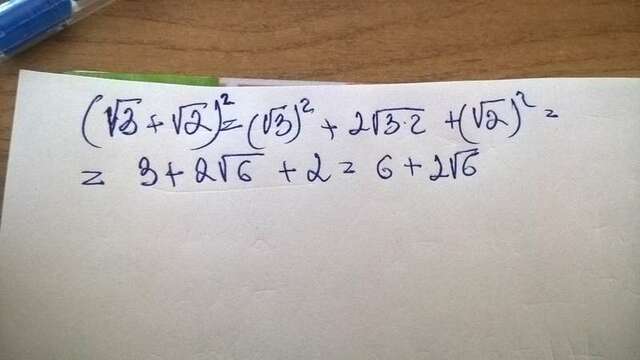 (√3 + √2)² = (√3)² + 2√3·2 + (√2)² =
= 3 + 2√6 + 2 = 6 + 2√6